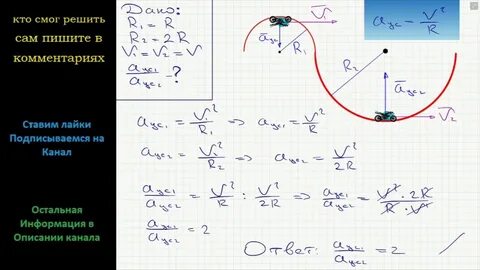 кто смог решить
сам пишите в
комментариях
Ставим лайки
Подписываемся на
Канал
Остальная
Информация в
Описании канала
Дано:
R₁ = R
R₂ = 2R
V₁ = V₂ = V
aцс₁/aцс₂ - ?
V⃗
a⃗цс₁
R₁
aцс = V²/R
R₂
a⃗цс₂
V⃗₂
aцс₁ = V₁²/R₁ => aцс₁ = V²/R
aцс₂ = V₂²/R₂ => aцс₂ = V²/2R
aцс₁/aцс₂ = V²/R : V²/2R => aцс₁/aцс₂ = V²·2R/R·V²
aцс₁/aцс₂ = 2
Ответ: aцс₁/aцс₂ = 2